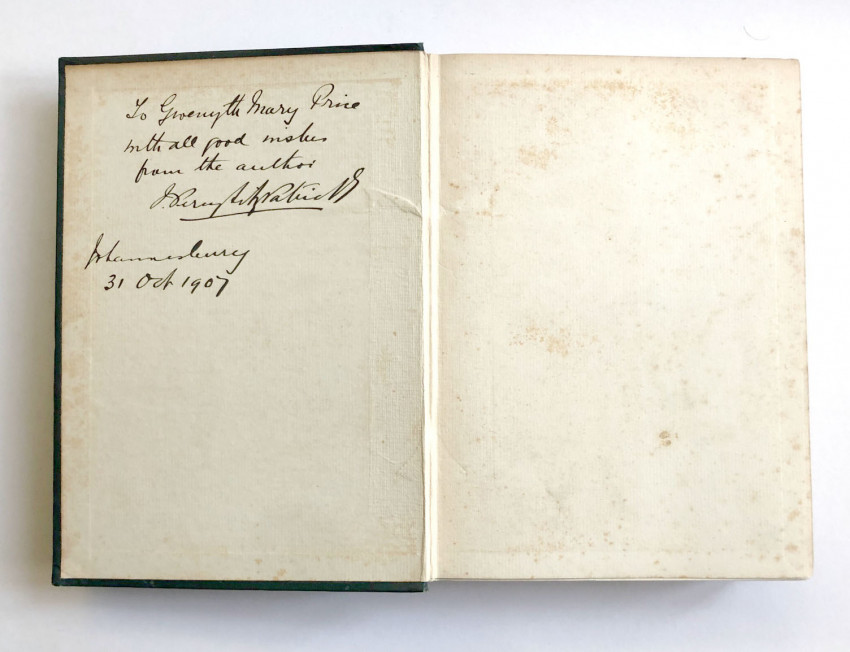 To Gwenyth Mary Price
with all good wishes
from the author
J. Percy FitzPatrick
Johannesburg
31 Oct 1907